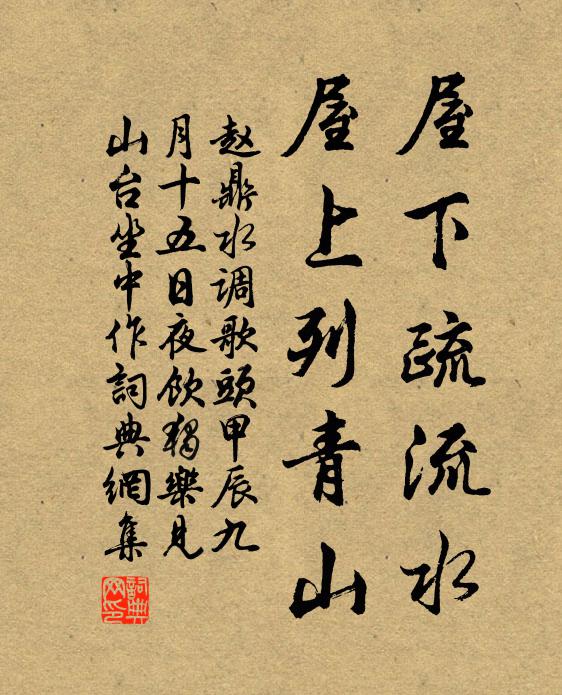 屋下疏流水
屋上列青山
赵鼎水调歌頭甲辰九
月十五日夜飲獨樂見
山台坐中作詞典網集
詞典
网印